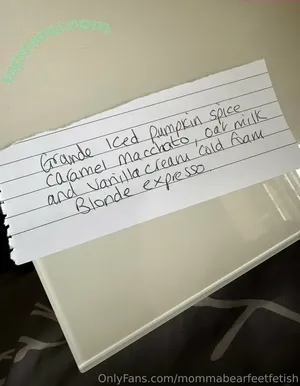 Grande Iced Pumpkin spice
caramel macchato, oat milk
and vanilla cream cold foam
Blonde expresso
OnlyFans.com/mommabearfeetfetish